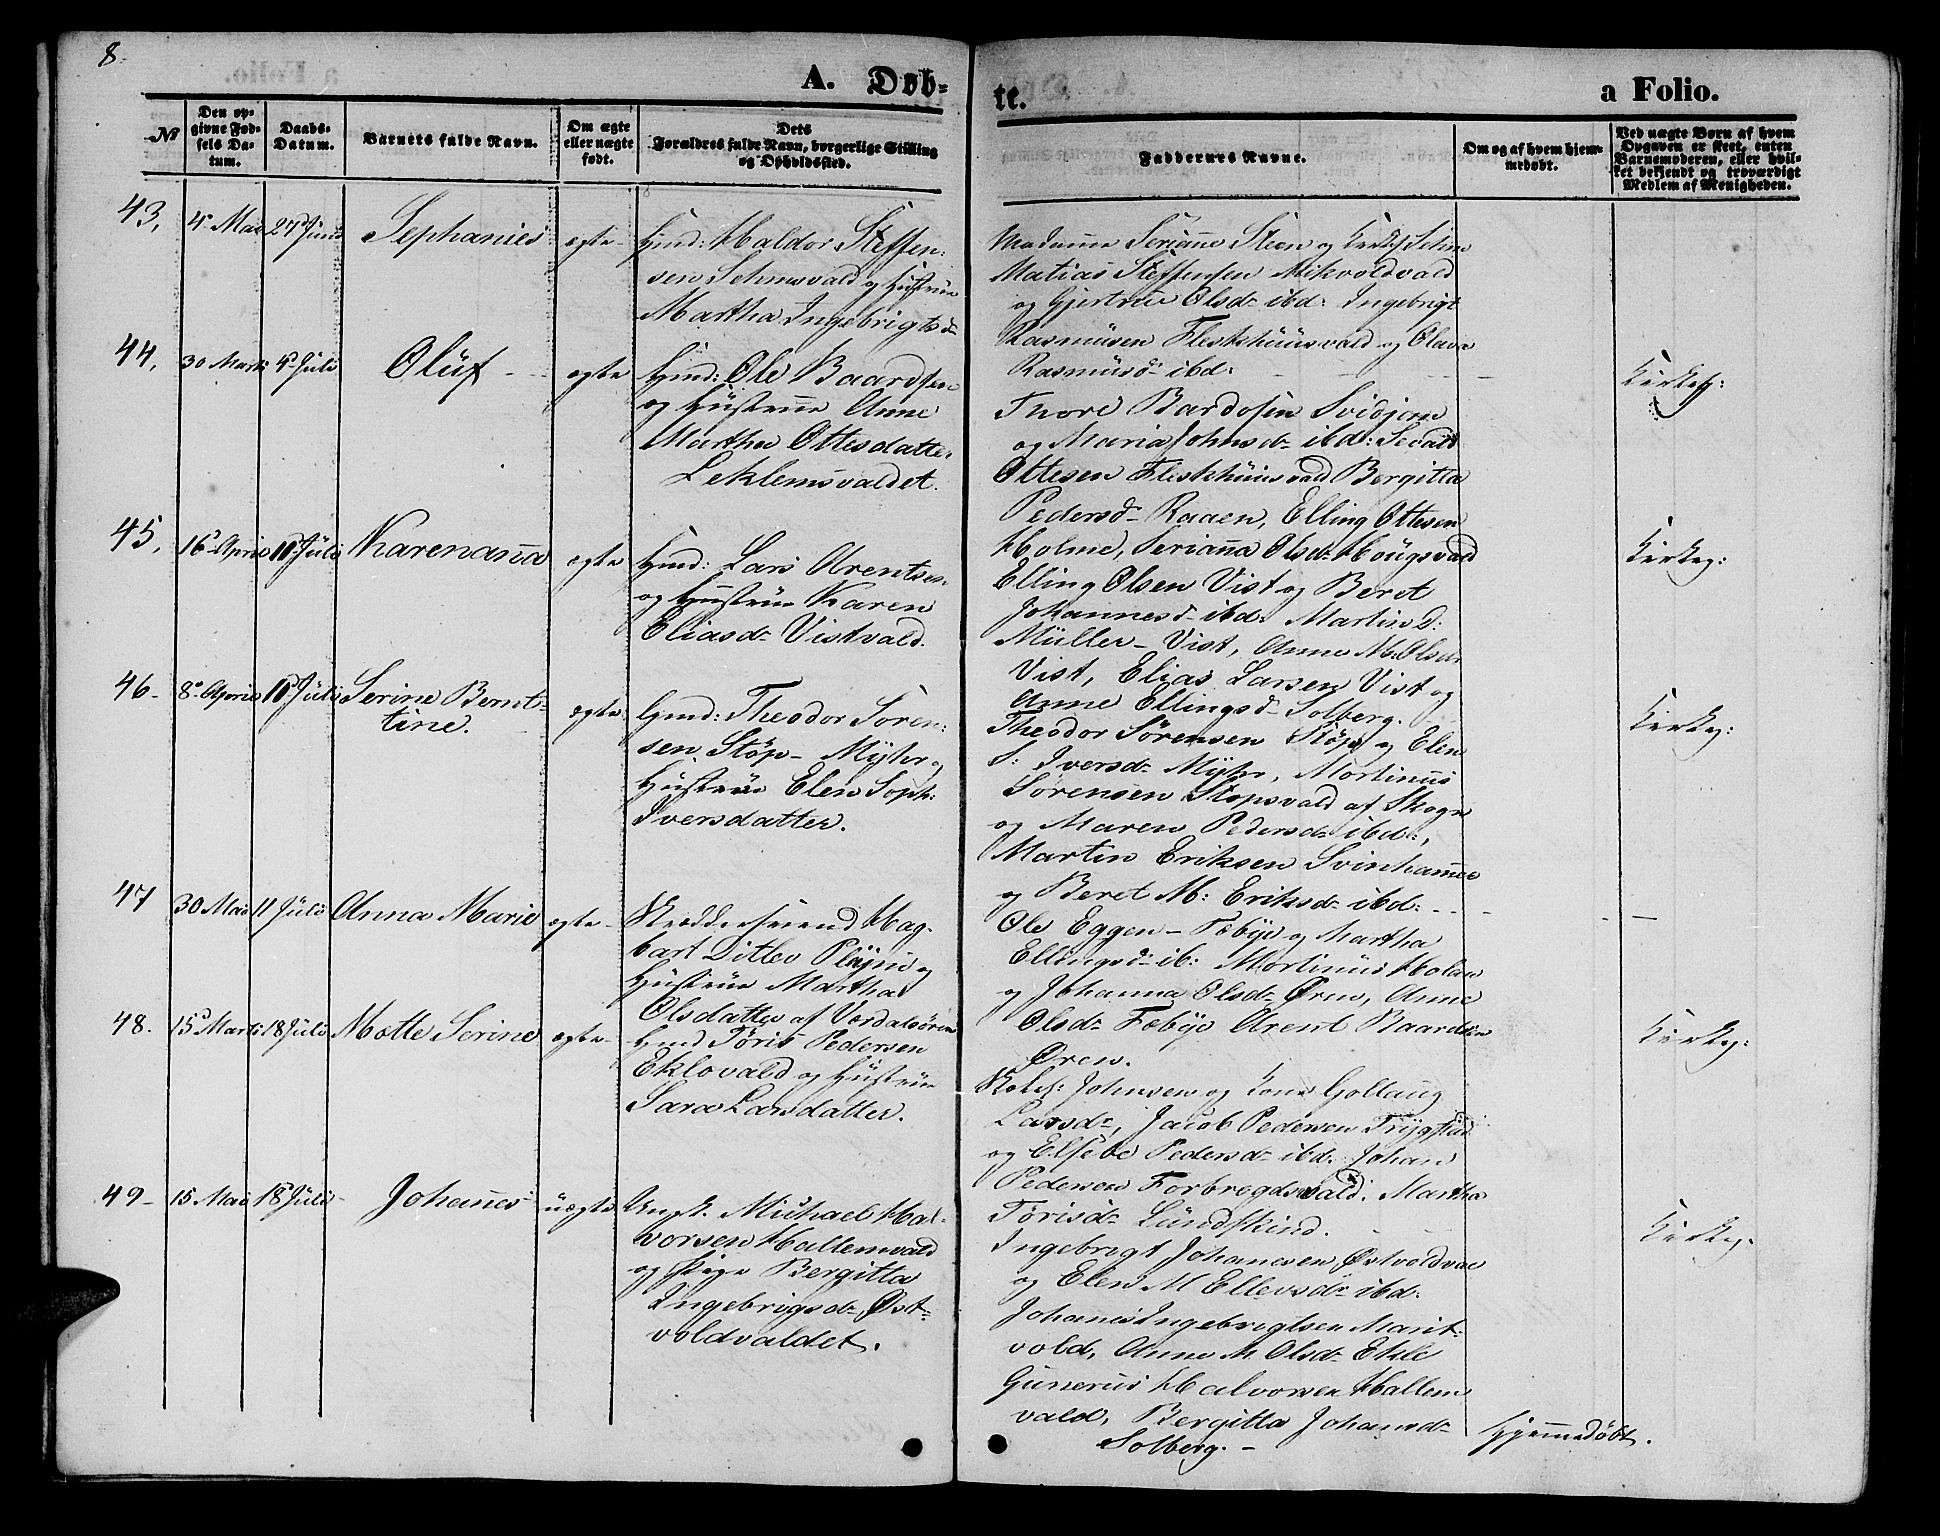 8.
A. Døb-
te.
a Folio.
No
Den op-
givne Fød-
sels Da-
tum.
Daabs-
Datum.
Barnets fulde Navn.
Om ægte
eller uægte
født.
Dets
Forældres fulde Navn, borgerlige Stilling
og Opholdssted.
Faddernes Navne.
Om og af hvem hjem-
medøbt.
Ved uægte Børn af hvem
Opgaven er skeet, enten
Barnemoderen, eller hvil-
ket bekjendt og troværdigt
Medlem af Menigheden.
43,
4de Mai
27de Juni
Sephanies
ægte
Hmd: Haldor Steffen-
sen Sehmsvald og Hustrue
Martha Ingebrigtsd
Madame Serianne Steen og Kirkes. Sehm
Matias Steffensen Mikvoldvald
og Gjertrue Olsd ibd: Ingebrigt
Rasmusen Fleskhuusvald og Olava
Rasmusd ibd:
44,
30 Marts
4de Juli
Oluf
ægte
Hmd: Ole Baardsen
og Hustrue Anne
Martha Ottesdatter
Leklemsvaldet.
Thore Bardosen Svedjem
og Maria Johnsd ibd: Sevald
Ottesen Fleskhuusvald Bergitta
Pedersd Raaen, Elling Ottesen
Holme, Serianna Olsd Hougsvald
Kirkes:
45,
16de April
11 Juli
Karenanna
ægte
Hmd: Lars Arentsen
og Hustrue Karen
Eliasd Vistvald.
Elling Olsen Vist og Beret
Johannesd ibd: Martin d:
Müller - Vist, Anne M: Olsd
Vist, Elias Larsen Vist og
Anne Ellingsd Solberg.
Kirkes:
46-
8de April
11 Juli
Serine Bernt-
tine.
ægte
Hmd: Theodor Søren-
sen Støp - Myhr og
Hustrue Elen Soph:
Iversdatter.
Theodor Sørensen Støp og Elen
S: Iversd Myhr, Mortinus
Sørensen Støpsvald af Skogn
og Maren Pedersd ibd:,
Martin Eriksen Svinhamer
og Beret M: Eriksd ibd:
Kirkes:
47
30 Mai
11 Juli
Anna Marie
ægte
Skrædersvend Hag-
bart Ditlev Pløjni og
Hustrue Martha
Olsdatter af Værdalsøren
Ole Eggen - Fæbye og Martha
Ellingsd ib: Mortinus Holan
og Johanna Olsd Øren, Anne
Olsd Fæbye Arent Baardsen
Øren.
48.
15de Marts
18 Juli
Mætte Serine
ægte
Hmd Tøris Pedersen
Eklovald og Hustrue
Sara Larsdatter.
Skoles: Johnsen og Kone Gollaug
Larsd, Jacob Pedersen Trygstad
og Elsebe Pedersd ibd: Johan
Pedersen Forbregdsvald. Martha
Tørisd Lundskind.
Kirkes:
49-
15 Mai
18 Juli
Johanes
uægte
Ungk. Michael Hal-
vorsen Hallemvald
og Pige Bergitta
Ingebrigsd Øst-
voldvaldet.
Ingebrigt Johanesen Østvoldvae
og Elen M Ellevsd ibd:
Johanes Ingebrigtsen Marit-
vold, Anne M. Olsd Ekle
Gunerus Halvorsen Hallem
vald, Bergitta Johansd
Solberg.
Kirkes:
Hjemmedøbt.